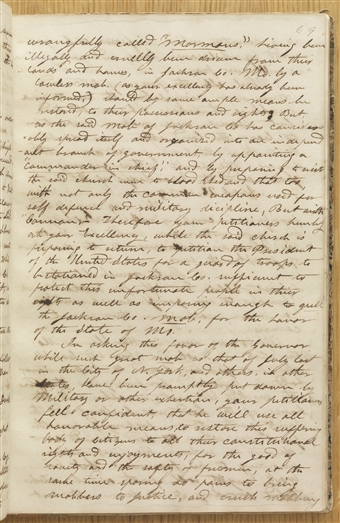 69
wrongfully called "Mormons," having been
illegally and cruelly been driven from their
lands and homes, in Jackson Co. Mo. by a
lawless mob, (as your excellency has already been
informed,) should by some ample means be
restored, to their possessions and rights; But
as the said mob of Jackson Co has
spread itself and organized into an independ
ant branch of government by appointing a
"Commander in chief," and by preparing to
the said church even to blood shed and that too,
with not only the common weapons used for
self defence and military dicipline, But with
Cannon. Therefore your petitioners humbly
ask your Excellency, while the said church is
preparing to return, to petition the President
of the United States for a guard of troops, to
be stationed in Jackson Co. sufficient to
protect this unfortunate people in their
rights as well as imposing enough to quell
the Jackson Co. mob, for the honor
of the State of Mo.
In asking this favor of the Governor
while such great mob as that of July last
in the City of N. York, and others, in other
states, have been promptly put down by
Military or other exertions, your petitioners
feel confident, that he will use all
honorable means, to restore this suffering
body of citizens to all their constitutional
rights and enjoyments, for the good of
society and the safety of freemen, at the
same time sparing no pains to bring
mobbers to justice, and